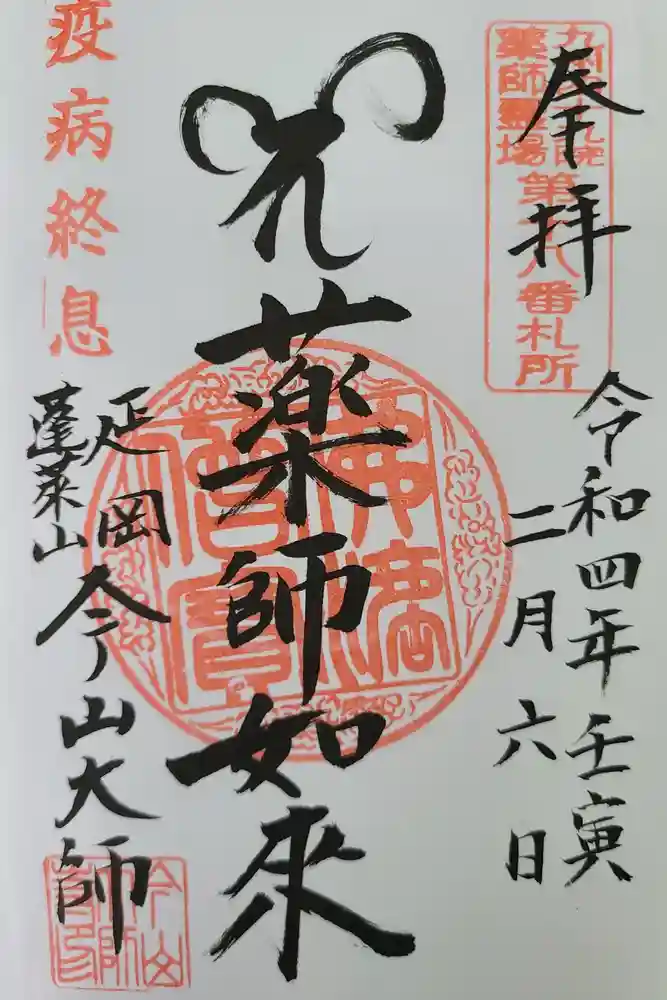 奉拝
九州四十九院
薬師霊場
第十八番札所
令和四年壬寅
二月六日
薬師如來
疫病終息
延岡今山大師
蓬萊山